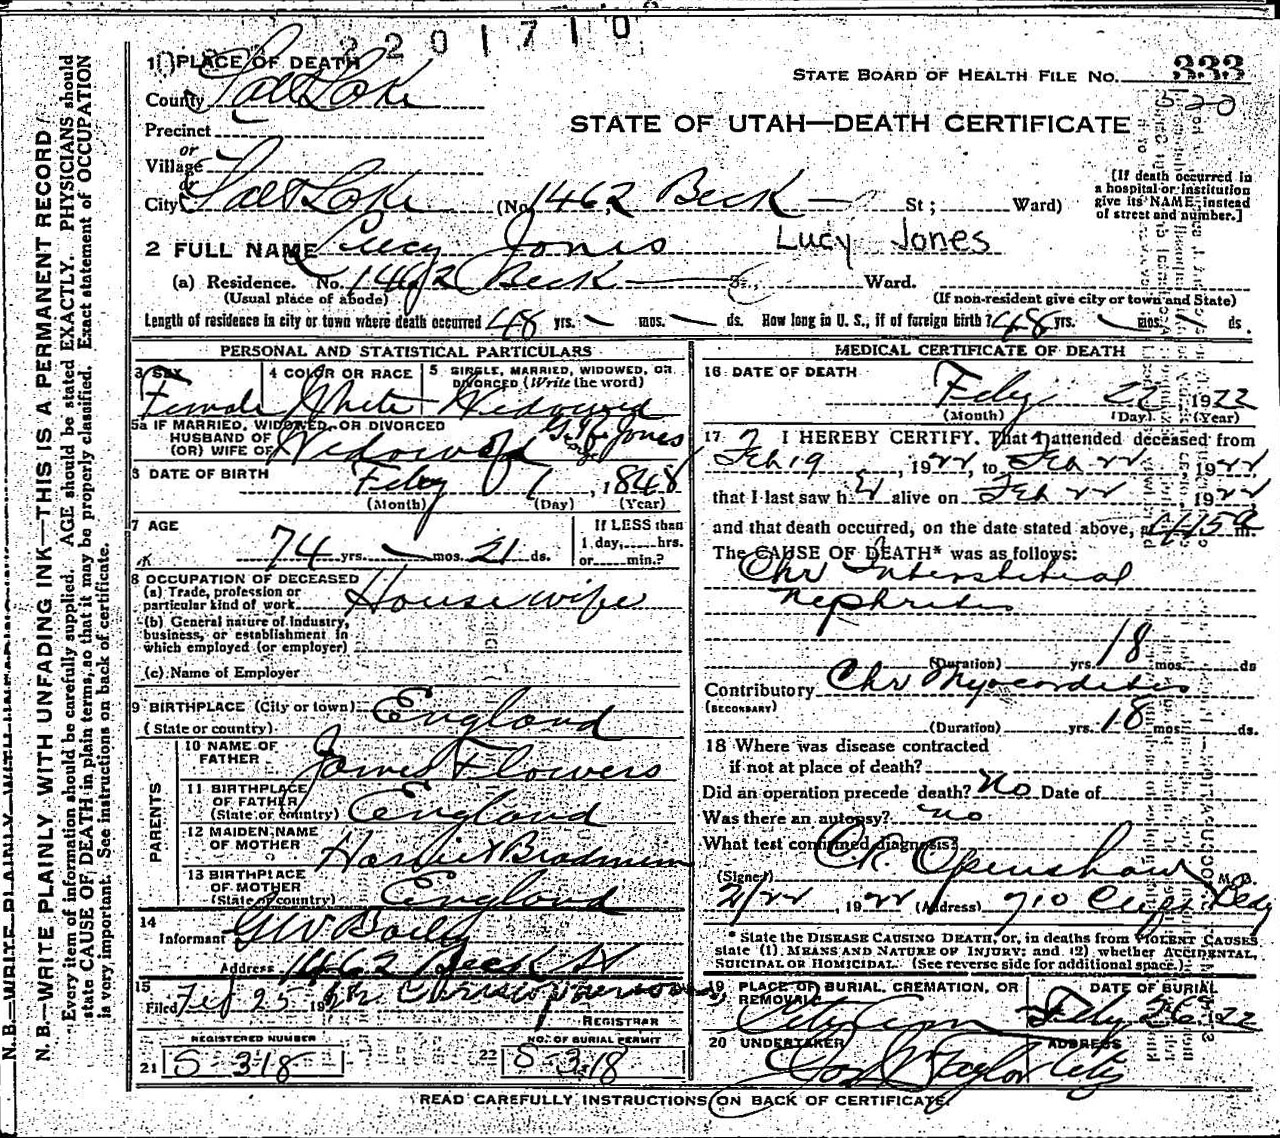 2201710
1 PLACE OF DEATH
STATE BOARD OF HEALTH FILE NO. 333
County Salt Lake
320
Precinct
STATE OF UTAH—DEATH CERTIFICATE
or
Village
or
City Salt Lake (No. 1462 Beck St; Ward)
[If death occurred in a hospital or institution give its NAME instead of street and number.]
2 FULL NAME Lucy Jones Lucy Jones
(a) Residence. No. 1462 Beck St., Ward.
(Usual place of abode) (If non-resident give city or town and State)
Length of residence in city or town where death occurred 48 yrs. — mos. — ds. How long in U. S., if of foreign birth? 48 yrs. — mos. — ds.
PERSONAL AND STATISTICAL PARTICULARS
3 SEX Female
4 COLOR OR RACE White
5 SINGLE, MARRIED, WIDOWED, OR DIVORCED (Write the word) Widowed
5a IF MARRIED, WIDOWED, OR DIVORCED
HUSBAND OF
(OR) WIFE OF Widow of Jones
6 DATE OF BIRTH Feby 1, 1848
(Month) (Day) (Year)
7 AGE 74 yrs. — mos. 21 ds.
If LESS than 1 day, hrs. or min.?
8 OCCUPATION OF DECEASED
(a) Trade, profession or particular kind of work Housewife
(b) General nature of industry, business, or establishment in which employed (or employer)
(c) Name of Employer
9 BIRTHPLACE (City or town) England
(State or country)
PARENTS
10 NAME OF FATHER James Flowers
11 BIRTHPLACE OF FATHER (State or country) England
12 MAIDEN NAME OF MOTHER Harriet
13 BIRTHPLACE OF MOTHER (State or country) England
14 Informant G W Baily
Address 1462 Beck St
15 Filed Feb 25 19
REGISTRAR
REGISTERED NUMBER
21 S-318
NO. OF BURIAL PERMIT
22 S-318
MEDICAL CERTIFICATE OF DEATH
16 DATE OF DEATH Feby 22 1922
(Month) (Day) (Year)
17 I HEREBY CERTIFY, That I attended deceased from
Feb 19, 1922, to Feb 22 1922
that I last saw her alive on Feb 22 1922
and that death occurred, on the date stated above, at m.
The CAUSE OF DEATH* was as follows:
Chr Interstitial
nephritis
(Duration) yrs. 18 mos. ds
Contributory Chr Myocarditis
(SECONDARY)
(Duration) yrs. 18 mos. ds.
18 Where was disease contracted
if not at place of death?
Did an operation precede death? No Date of
Was there an autopsy? no
What test confirmed diagnosis?
(Signed) Openshaw M. D.
2/22, 1922 (Address) 710
* State the DISEASE CAUSING DEATH, or, in deaths from VIOLENT CAUSES,
state (1) MEANS AND NATURE OF INJURY; and (2) whether ACCIDENTAL,
SUICIDAL OR HOMICIDAL. (See reverse side for additional space.)
19 PLACE OF BURIAL, CREMATION, OR REMOVAL City Cem
DATE OF BURIAL Feby 26 1922
20 UNDERTAKER Jos Wm Taylor
ADDRESS City
READ CAREFULLY INSTRUCTIONS ON BACK OF CERTIFICATE.
N. B.—WRITE PLAINLY WITH UNFADING INK—THIS IS A PERMANENT RECORD
Every item of information should be carefully supplied. AGE should be stated EXACTLY. PHYSICIANS should
state CAUSE OF DEATH in plain terms, so that it may be properly classified. Exact statement of OCCUPATION
is very important. See instructions on back of certificate.